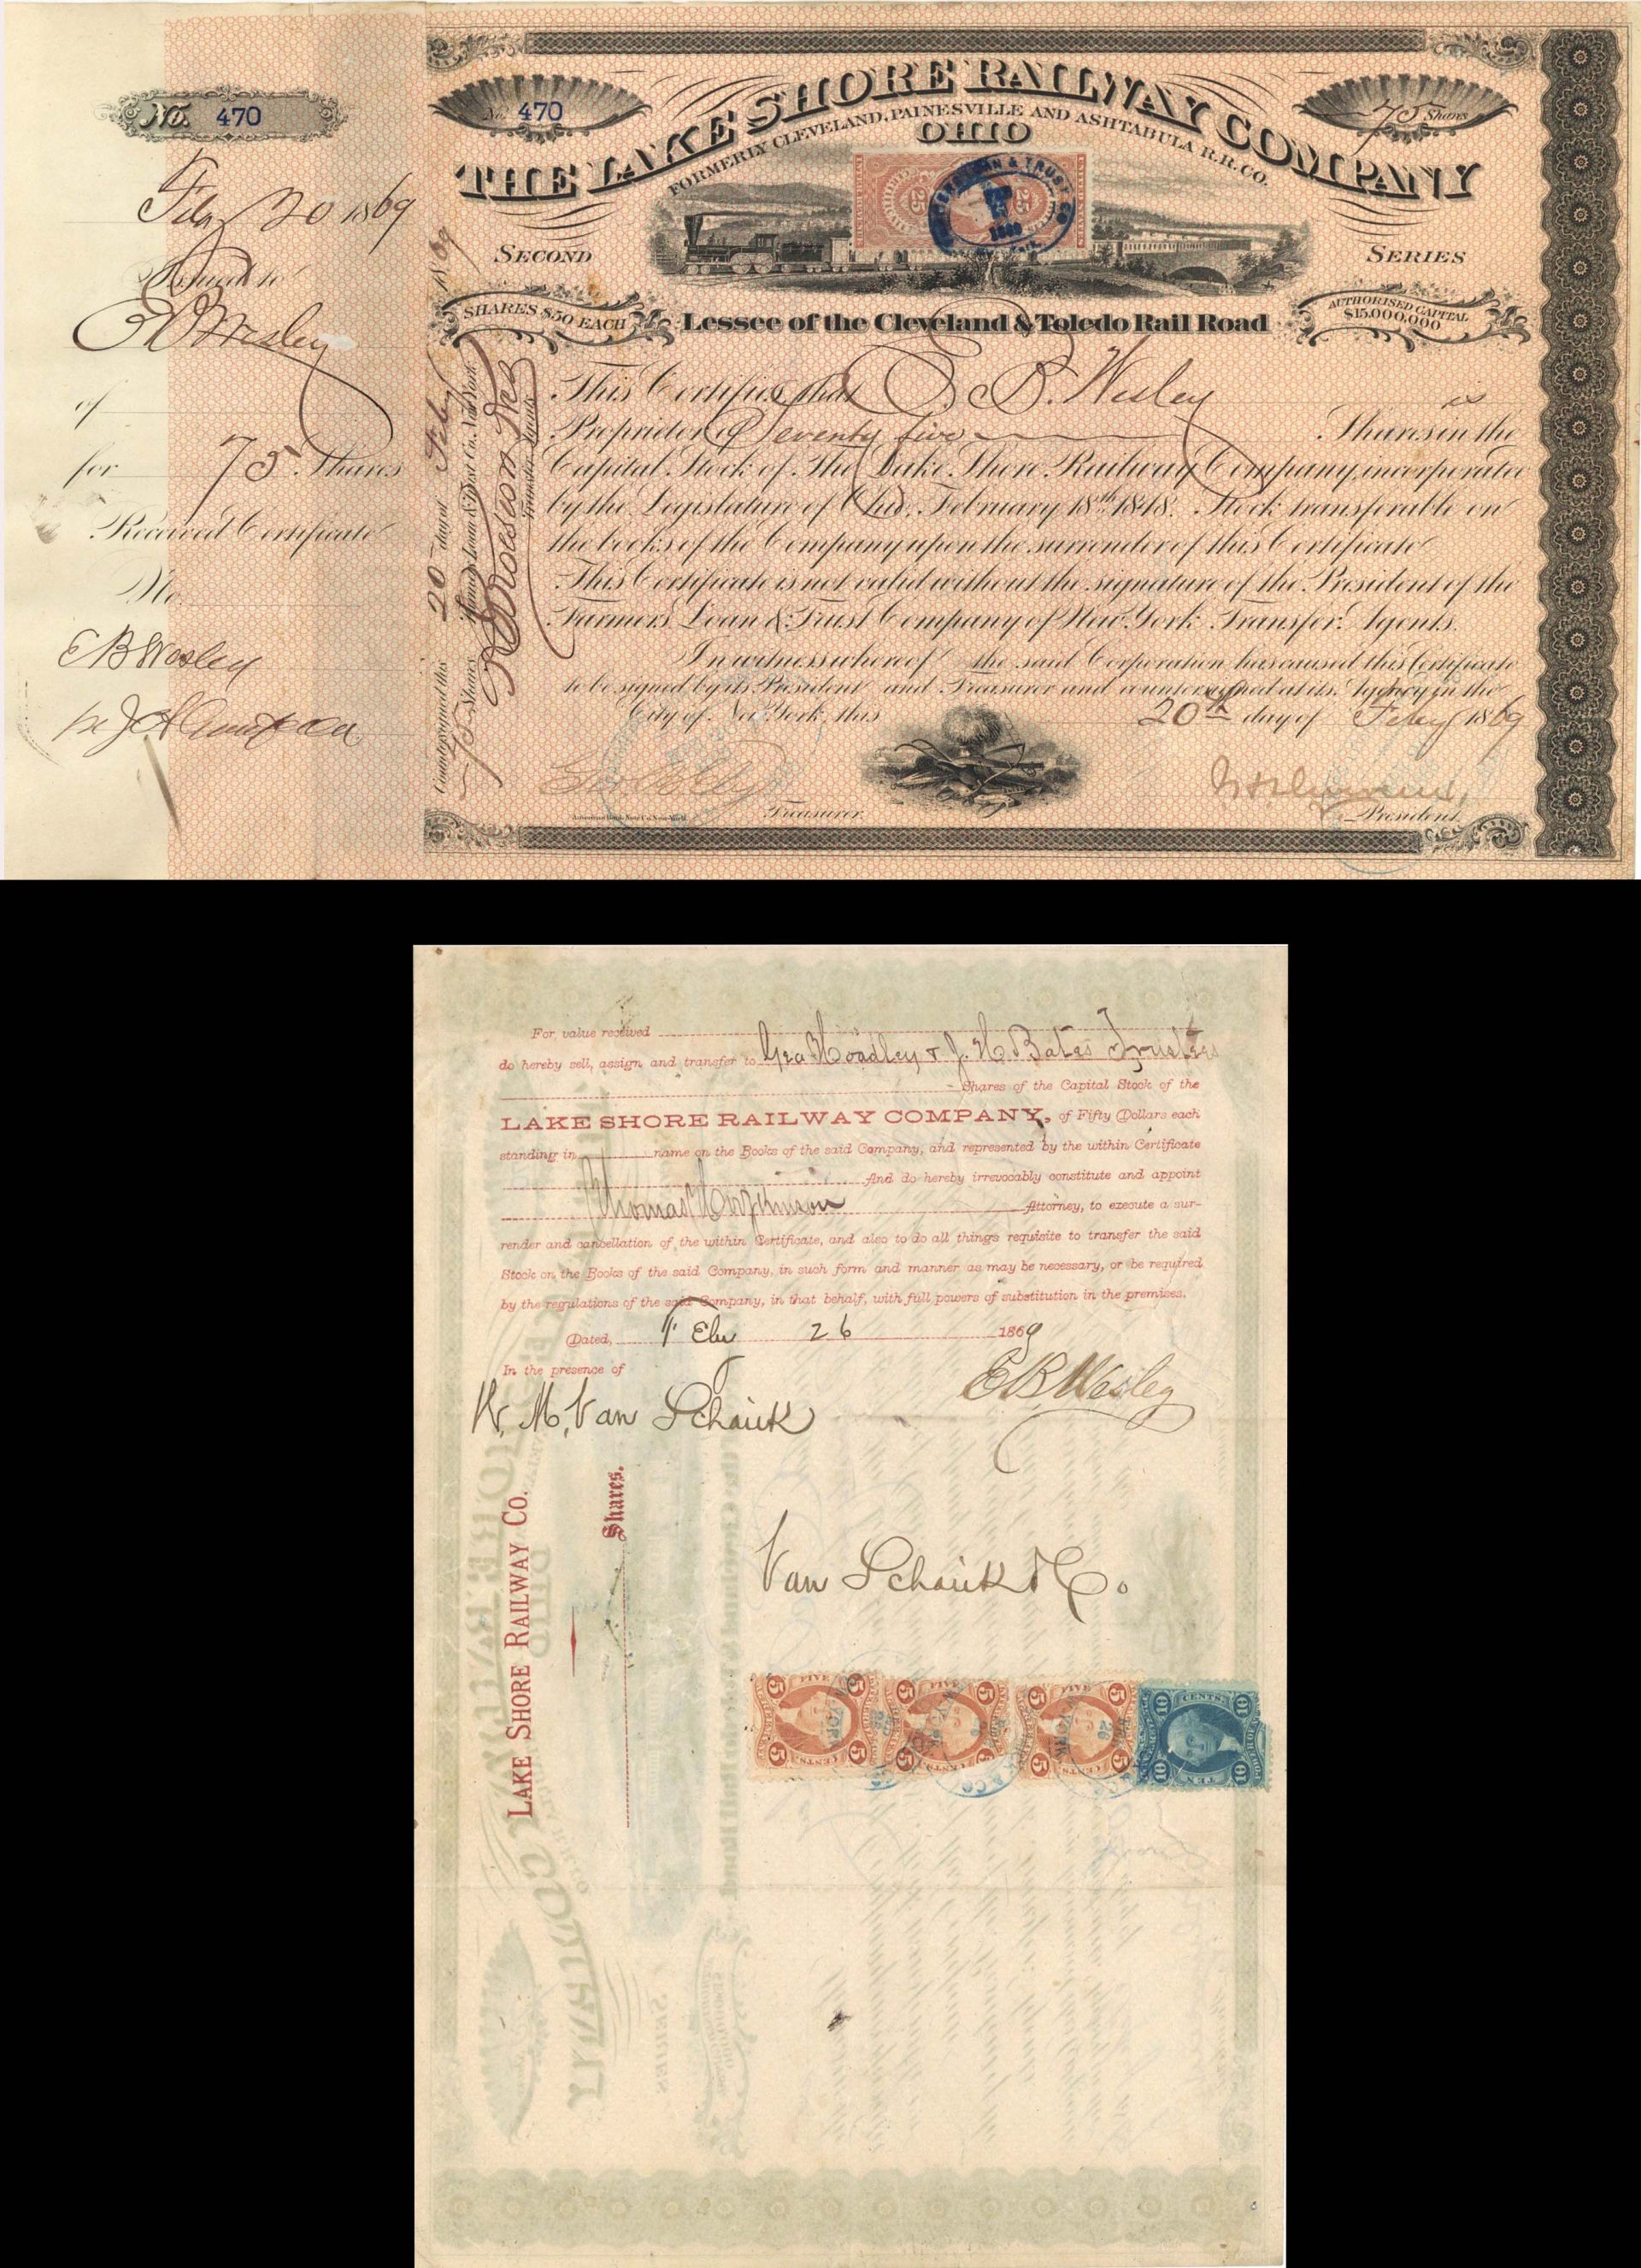 No. 470
Feby 20 1869
Issued to
E B Wesley
of
for 75 Shares
Received Certificate
No.
E B Wesley
No. 470
75 Shares
THE LAKE SHORE RAILWAY COMPANY
FORMERLY CLEVELAND, PAINESVILLE AND ASHTABULA R.R. CO.
OHIO
SECOND
SERIES
SHARES $50 EACH
Lessee of the Cleveland & Toledo Rail Road
AUTHORISED CAPITAL
$15.000.000
This Certifies that E. B. Wesley is
Proprietor of Seventy five Shares in the
Capital Stock of The Lake Shore Railway Company, incorporated
by the Legislature of Ohio, February 18th 1848. Stock transferable on
the books of the Company upon the surrender of this Certificate
This Certificate is not valid without the signature of the President of the
Farmers Loan & Trust Company of New York Transfer Agents.
In witness whereof the said Corporation has caused this Certificate
to be signed by its President and Treasurer and countersigned at its Agency in the
City of New York, this 20th day of Feby 1869
Treasurer.
President.
American Bank Note Co. New York
Countersigned this 20 day of Feby 1869
75 Shares Farmers Loan & Trust Co. New York
Transfer Agents
For value received
do hereby sell, assign and transfer to Geo Hoadley & J. H. Bates Trustees
Shares of the Capital Stock of the
LAKE SHORE RAILWAY COMPANY, of Fifty Dollars each
standing in name on the Books of the said Company, and represented by the within Certificate
And do hereby irrevocably constitute and appoint
Thomas Hopkinson Attorney, to execute a sur-
render and cancellation of the within Certificate, and also to do all things requisite to transfer the said
Stock on the Books of the said Company, in such form and manner as may be necessary, or be required
by the regulations of the said Company, in that behalf, with full powers of substitution in the premises.
Dated, Feby 26 1869
In the presence of
E B Wesley
H. M. Van Schaick
Van Schaick & Co
LAKE SHORE RAILWAY CO.
Shares.
FIVE CENTS
5
FIVE CENTS
5
FIVE CENTS
5
TEN CENTS
10